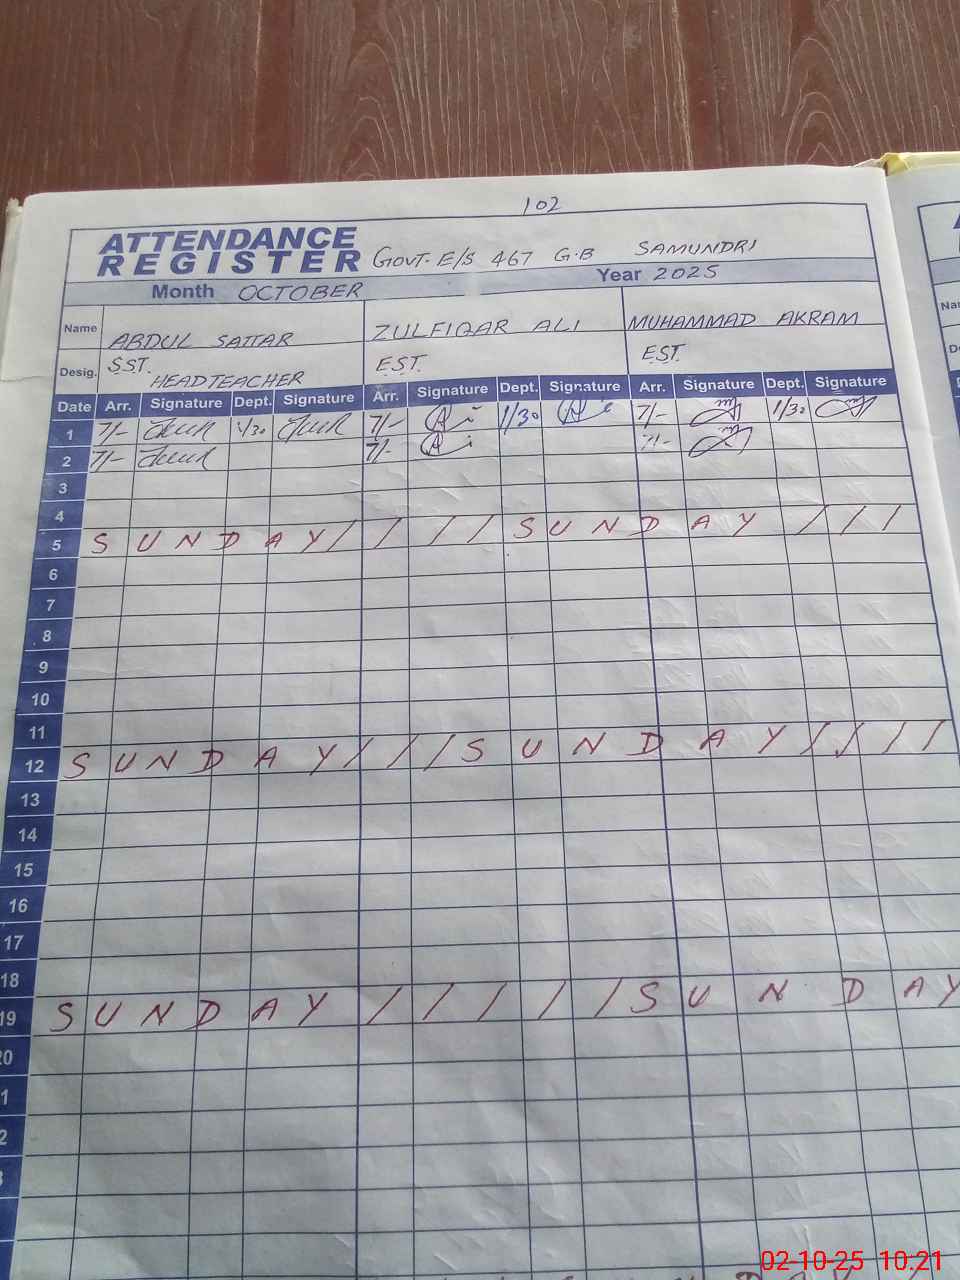 102
ATTENDANCE
REGISTER GOVT. E/S 467 G.B SAMUNDRI
Month OCTOBER Year 2025
Name ABDUL SATTAR ZULFIQAR ALI MUHAMMAD AKRAM
Desig. S.S.T. HEADTEACHER E.S.T. E.S.T.
Date Arr. Signature Dept. Signature Arr. Signature Dept. Signature Arr. Signature Dept. Signature
1 7/- 1/30 7/- 1/30 7/- 1/30
2 7/- 7/- 7/-
3
4
5 SUNDAY / / / / SUNDAY / / /
6
7
8
9
10
11
12 SUNDAY / / / SUNDAY / / / / /
13
14
15
16
17
18
19 SUNDAY / / / / / SUNDAY
20
1
2
3
02-10-25 10:21